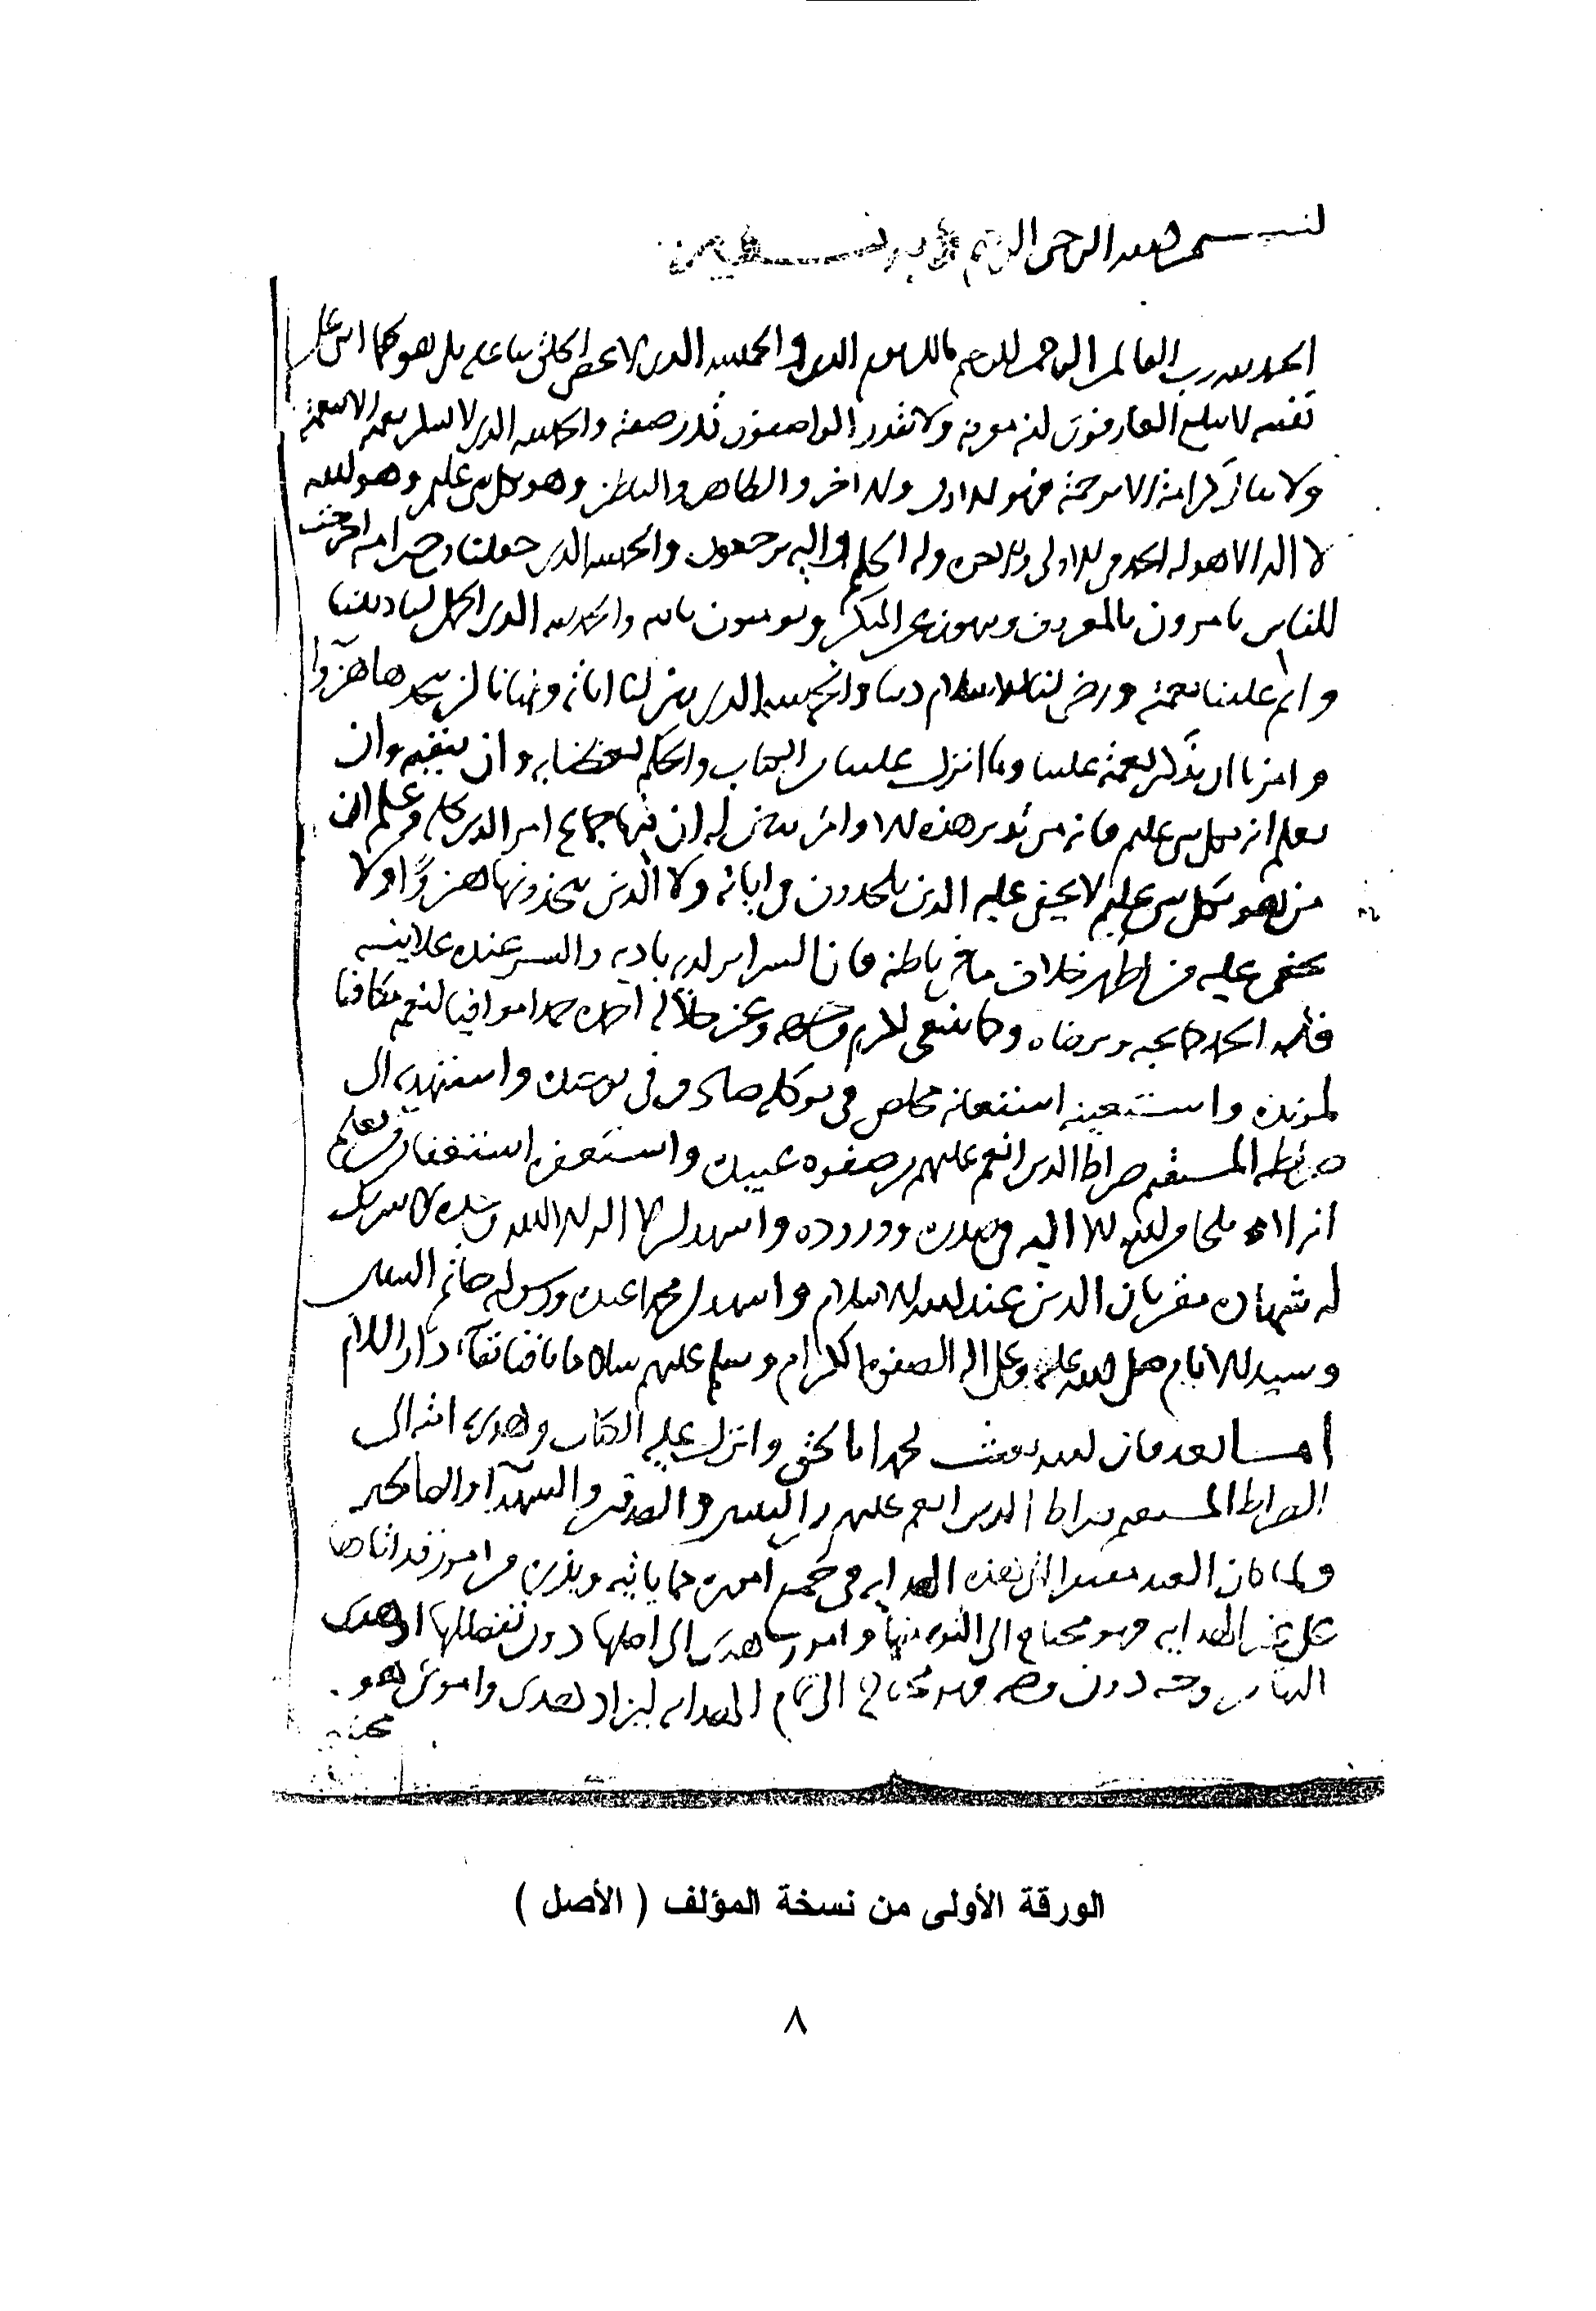 بسم الله الرحمن الرحيم وبه نستعين
الحمد لله رب العالمين الرحمن الرحيم مالك يوم الدين والحمد لله الذي لا يحصي الخلق ثناء عليه بل هو كما اثنى على
نفسه لا يبلغ العارفون كنه معرفته ولا يقدر الواصفون قدر صفته والحمد لله الذي لا تشكر نعمته الا بنعمته
ولا تنال كرامته الا برحمته فهو الاول والاخر والظاهر والباطن وهو بكل شي عليم وهو الله
لا اله الا هو له الحمد في الاولى والاخرة وله الحكم واليه ترجعون والحمد لله الذي جعلنا خير امة اخرجت
للناس نامرون بالمعروف وننهون عن المنكر ونومنون بالله والحمد لله الذي اكمل لنا ديننا
واتم علينا نعمته ورضي لنا الاسلام دينا والحمد لله الذي بين لنا اياته ونهانا ان نتخذها هزوا
وامرنا ان نذكر نعمته علينا وما انزل علينا من الكتاب والحكمة يعظنا به وان نتقيه وان
نعلم انه بكل شي عليم فانه من تدبر هذه الاوامر تبين له ان فيها جماع امر الدين كله وعلم ان
من هو بكل شي عليم لا يخفى عليه الذين يلحدون في اياته ولا الذين يتخذونها هزوا ولا
يخفى عليه من اظهر خلاف ما في باطنه فان السراير لديه باديه والسر عنده علانيه
فله الحمد كما يحبه ويرضاه وكما ينبغي لكرم وجهه وعز جلاله احمده حمدا موافيا لنعمه مكافيا
لمزيده واستعينه استعانة مخلص في توكله صادق في توحيده واستهديه الى
صراطه المستقيم صراط الذين انعم عليهم من صفوة عبيده واستغفره استغفار من يعلم
انه لا ملجا من الله الا اليه في صدره ووروده واشهد ان لا اله الا الله وحده لا شريك
له شهادة مقر بان الدين عند الله الاسلام واشهد ان محمدا عبده ورسوله خاتم النبيين
وسيد الانام صلى الله عليه وعلى اله الصفوة الكرام وسلم عليهم سلاما باقيا ببقاء دار السلام
اما بعد فان الله بعث محمدا بالحق وانزل عليه الكتاب وهدى به امته الى
الصراط المستقيم صراط الذين انعم عليهم من النبيين والصديقين والشهداء والصالحين
ولما كان العبد مفتقرا الى هذه الهداية في جميع اموره مما ياتيه ويذره من امور قد اتاها
على غير الهداية فهو محتاج الى التوبة منها وامور هدي الى اصلها دون تفصيلها او هدي
اليها من وجه دون وجه فهو محتاج الى تمام الهداية ليزداد هدى وامور هو
محتاج
الورقة الأولى من نسخة المؤلف ( الأصل )
٨